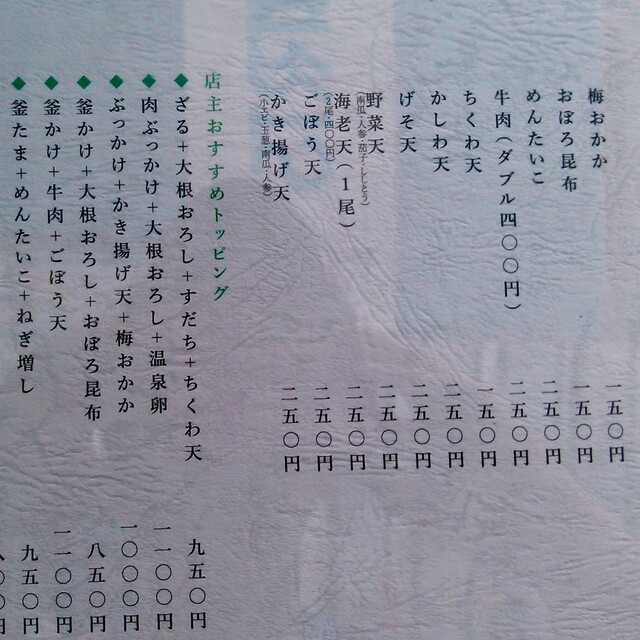 梅おかか 一五〇円
おぼろ昆布 一五〇円
めんたいこ 二五〇円
牛肉(ダブル四〇〇円) 二五〇円
ちくわ天 一五〇円
かしわ天 二五〇円
げそ天 二五〇円
野菜天 二五〇円
(南瓜・人参・茄子・ししとう)
海老天(1尾) 二五〇円
(2尾・四〇〇円)
ごぼう天 二五〇円
かき揚げ天 二五〇円
(小エビ・玉葱・南瓜・人参)
店主おすすめトッピング
◆ざる+大根おろし+すだち+ちくわ天 九五〇円
◆肉ぶっかけ+大根おろし+温泉卵 一一〇〇円
◆ぶっかけ+かき揚げ天+梅おかか 一〇〇〇円
◆釜かけ+大根おろし+おぼろ昆布 八五〇円
◆釜かけ+牛肉+ごぼう天 一一〇〇円
◆釜たま+めんたいこ+ねぎ増し 九五〇円